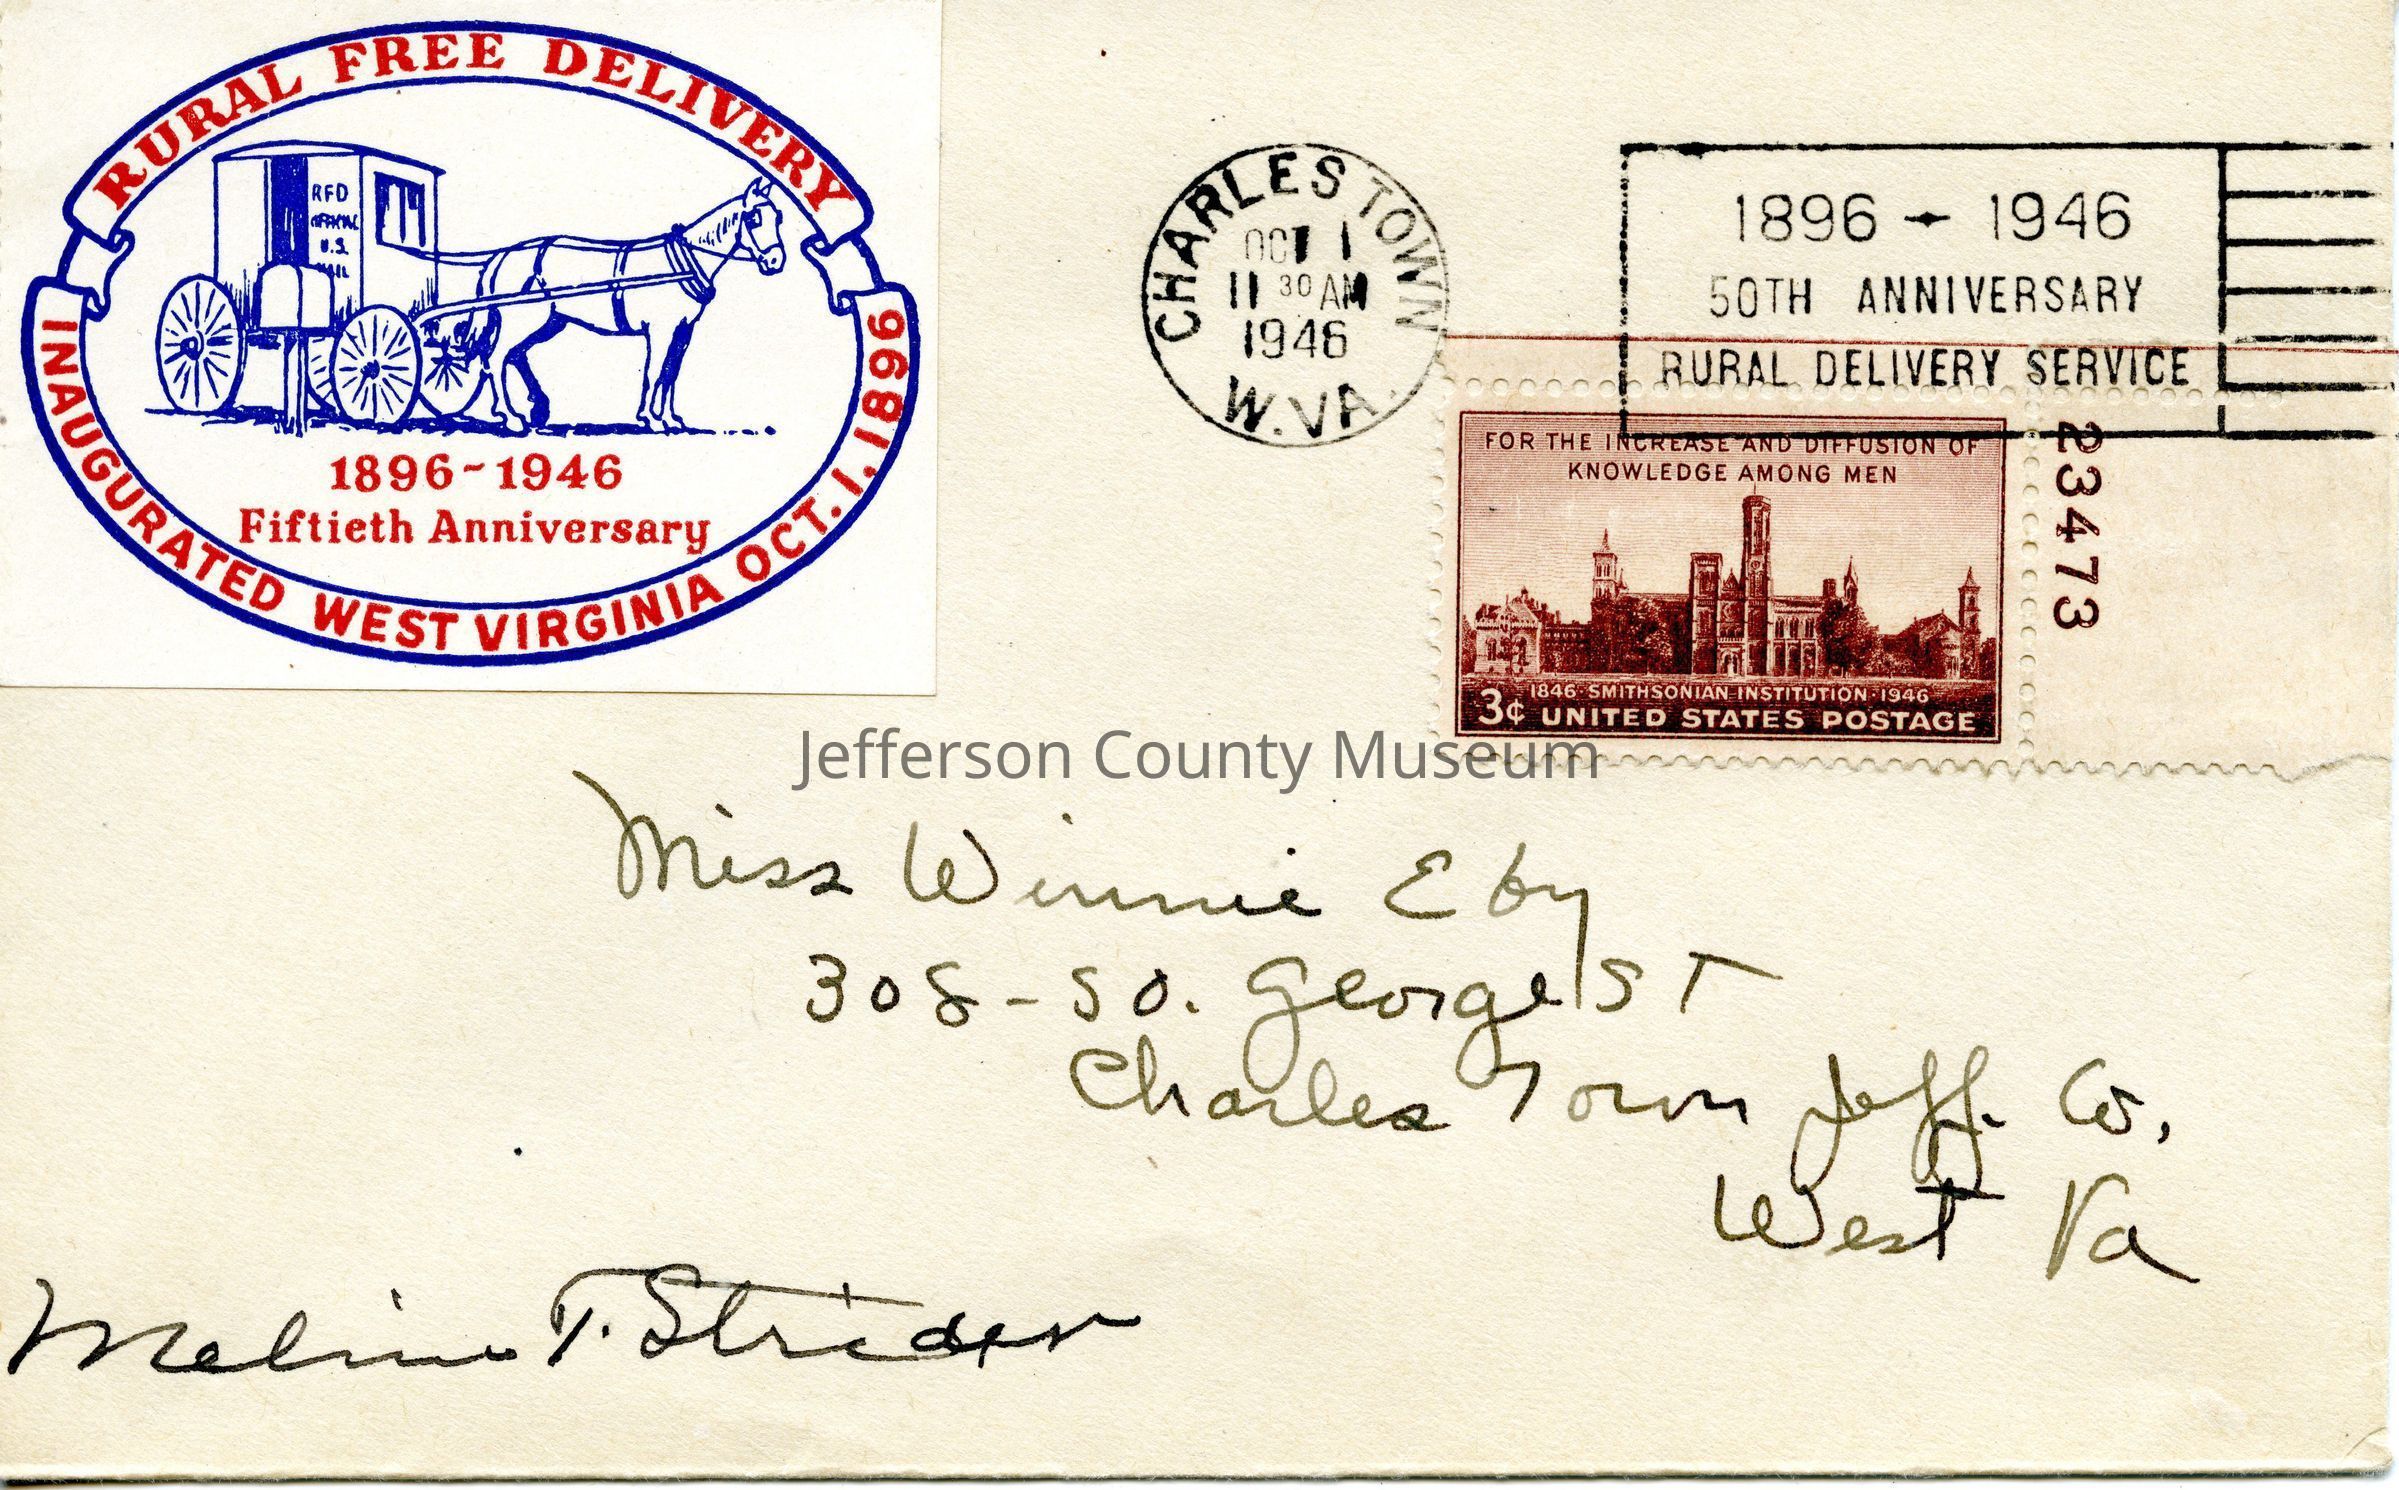 RURAL FREE DELIVERY
RFD
OFFICIAL
U.S.
MAIL
1896-1946
Fiftieth Anniversary
INAUGURATED WEST VIRGINIA OCT. 1, 1896
CHARLES TOWN
OCT 1
11 30 AM
1946
W. VA.
1896 - 1946
50TH ANNIVERSARY
RURAL DELIVERY SERVICE
FOR THE INCREASE AND DIFFUSION OF
KNOWLEDGE AMONG MEN
1846 · SMITHSONIAN INSTITUTION · 1946
3¢ UNITED STATES POSTAGE
23473
Jefferson County Museum
Miss Winnie Eby
308 - So. George ST
Charles Town Jeff. Co,
West Va
Melvin T. Strider